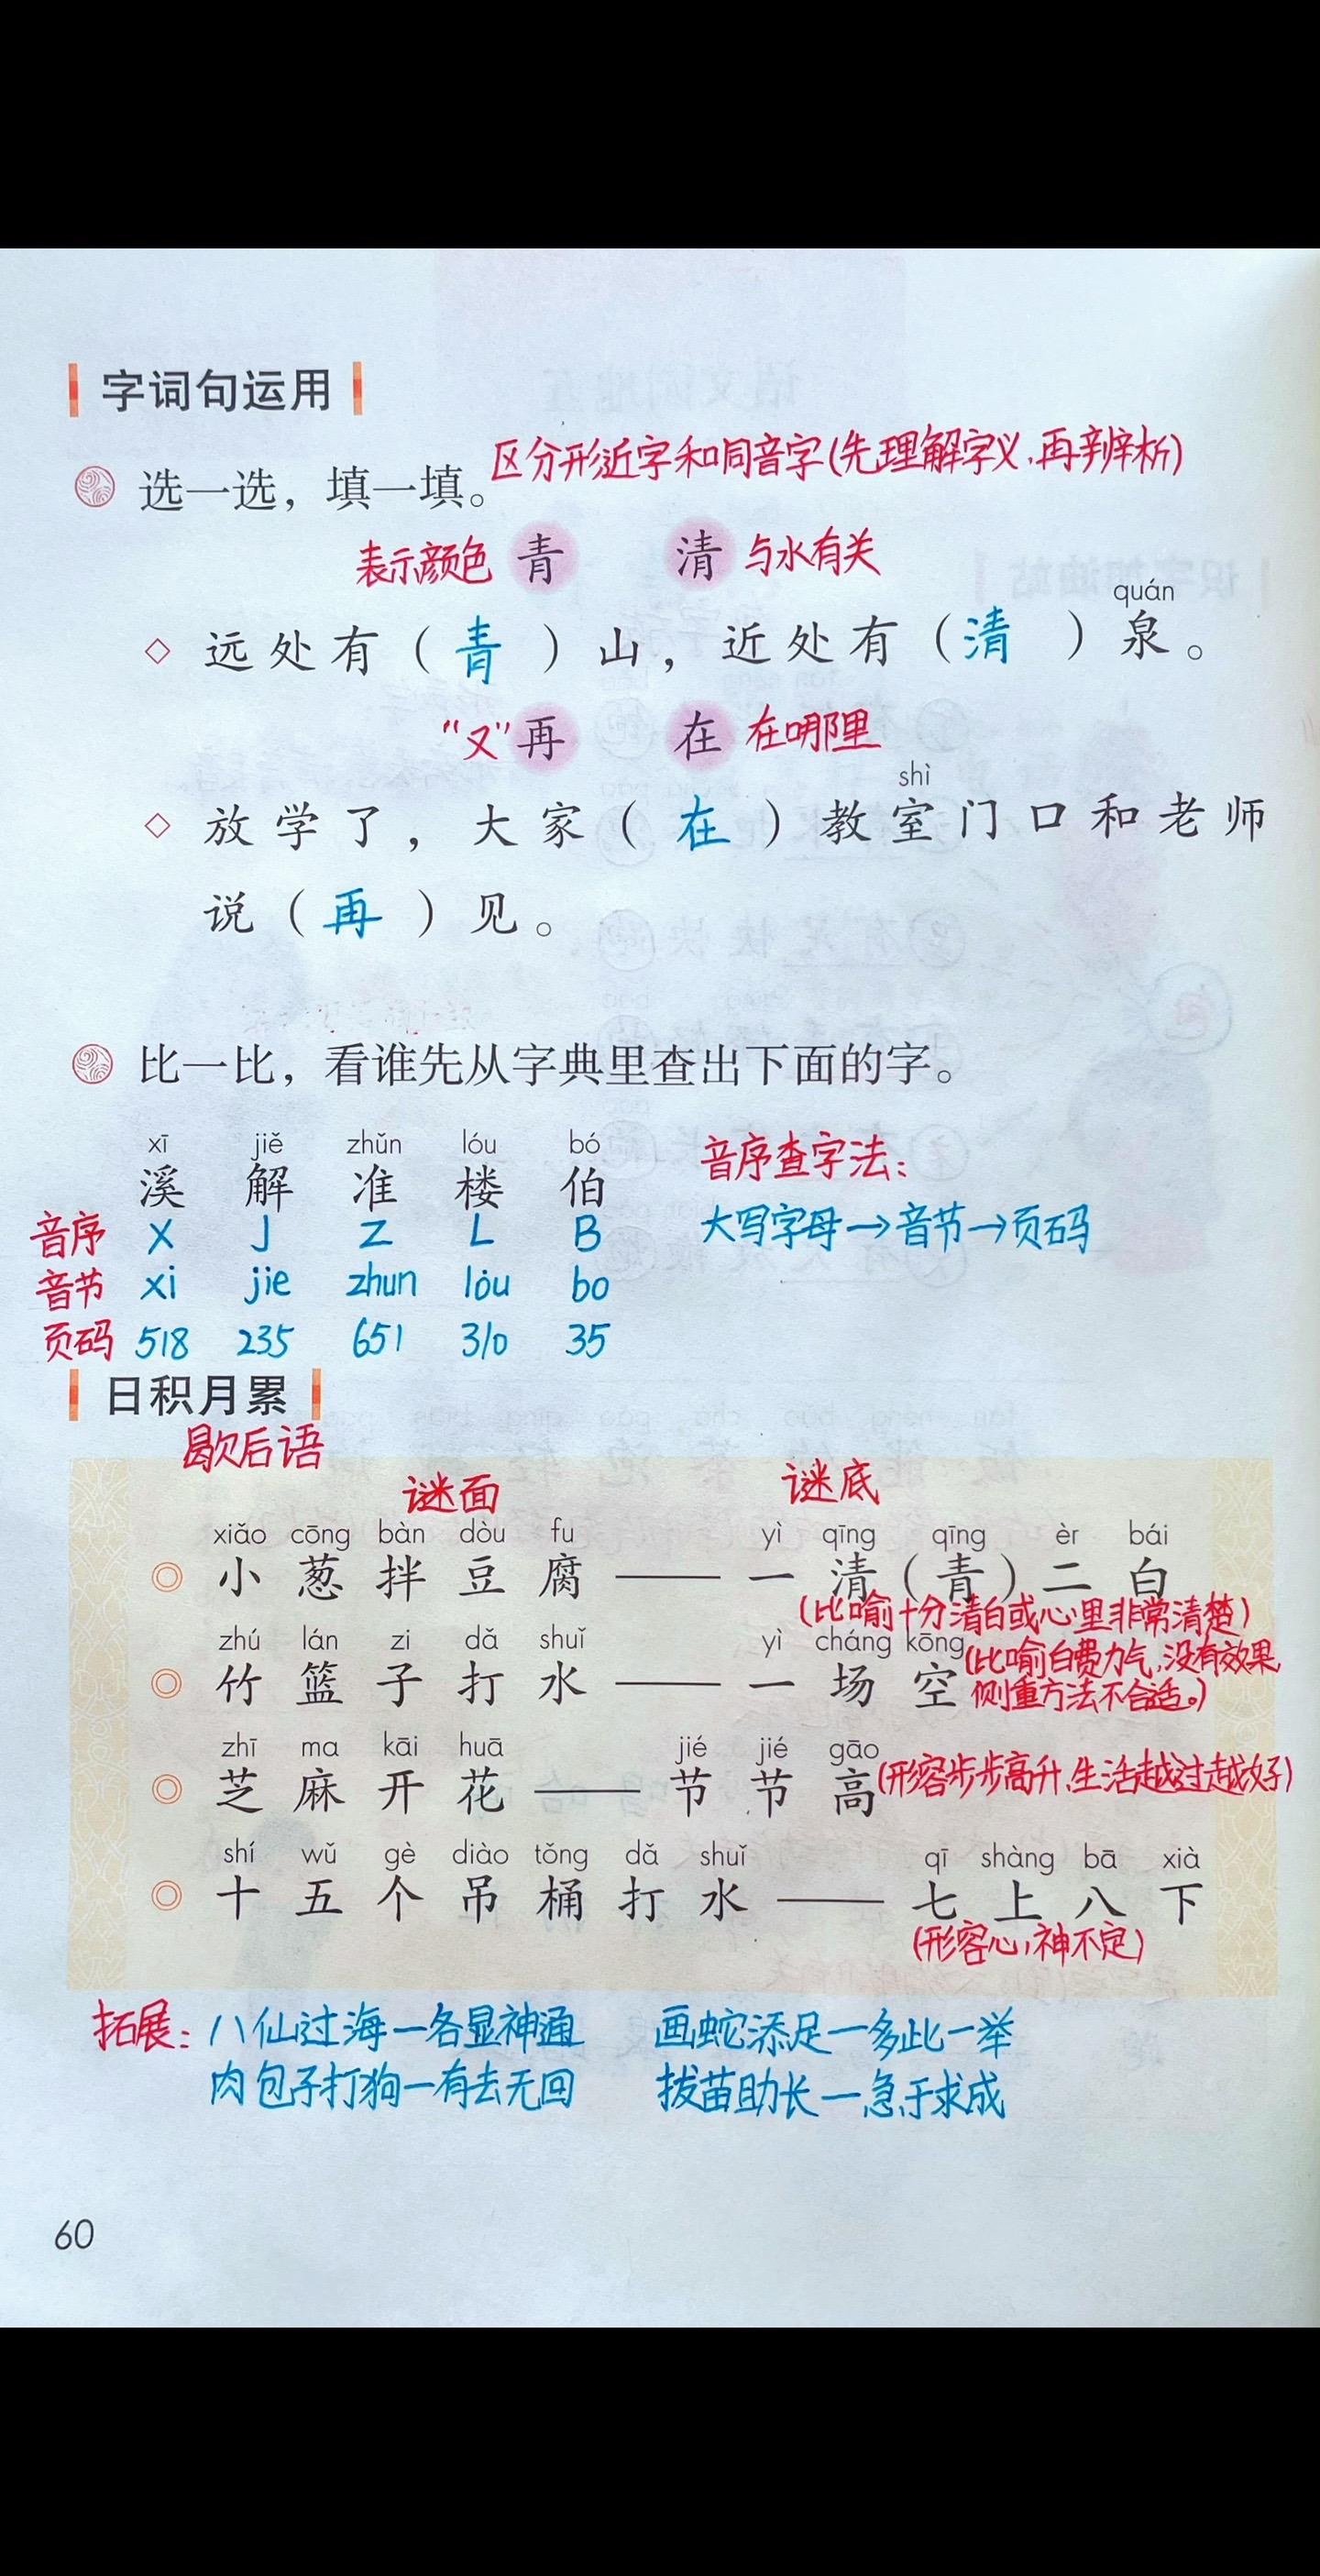 字词句运用
区分形近字和同音字(先理解字义,再辨析)
选一选，填一填。
表示颜色 青 清 与水有关
quán
远处有（青）山，近处有（清）泉。
"又"再 在 在哪里
shì
放学了，大家（在）教室门口和老师
说（再）见。
比一比，看谁先从字典里查出下面的字。
xī jiě zhǔn lóu bó
溪 解 准 楼 伯
音序查字法:
音序 X J Z L B
大写字母→音节→页码
音节 xi jie zhun lou bo
页码 518 235 651 310 35
日积月累
歇后语
谜面 谜底
xiǎo cōng bàn dòu fu yì qīng qīng èr bái
小葱拌豆腐——一清（青）二白
(比喻十分清白或心里非常清楚)
zhú lán zi dǎ shuǐ yì cháng kōng
竹篮子打水——一场空
(比喻白费力气,没有效果,
侧重方法不合适。)
zhī ma kāi huā jié jié gāo
芝麻开花——节节高
(形容步步高升,生活越过越好)
shí wǔ gè diào tǒng dǎ shuǐ qī shàng bā xià
十五个吊桶打水——七上八下
(形容心神不定)
拓展: 八仙过海—各显神通 画蛇添足—多此一举
肉包子打狗—有去无回 拔苗助长—急于求成
60